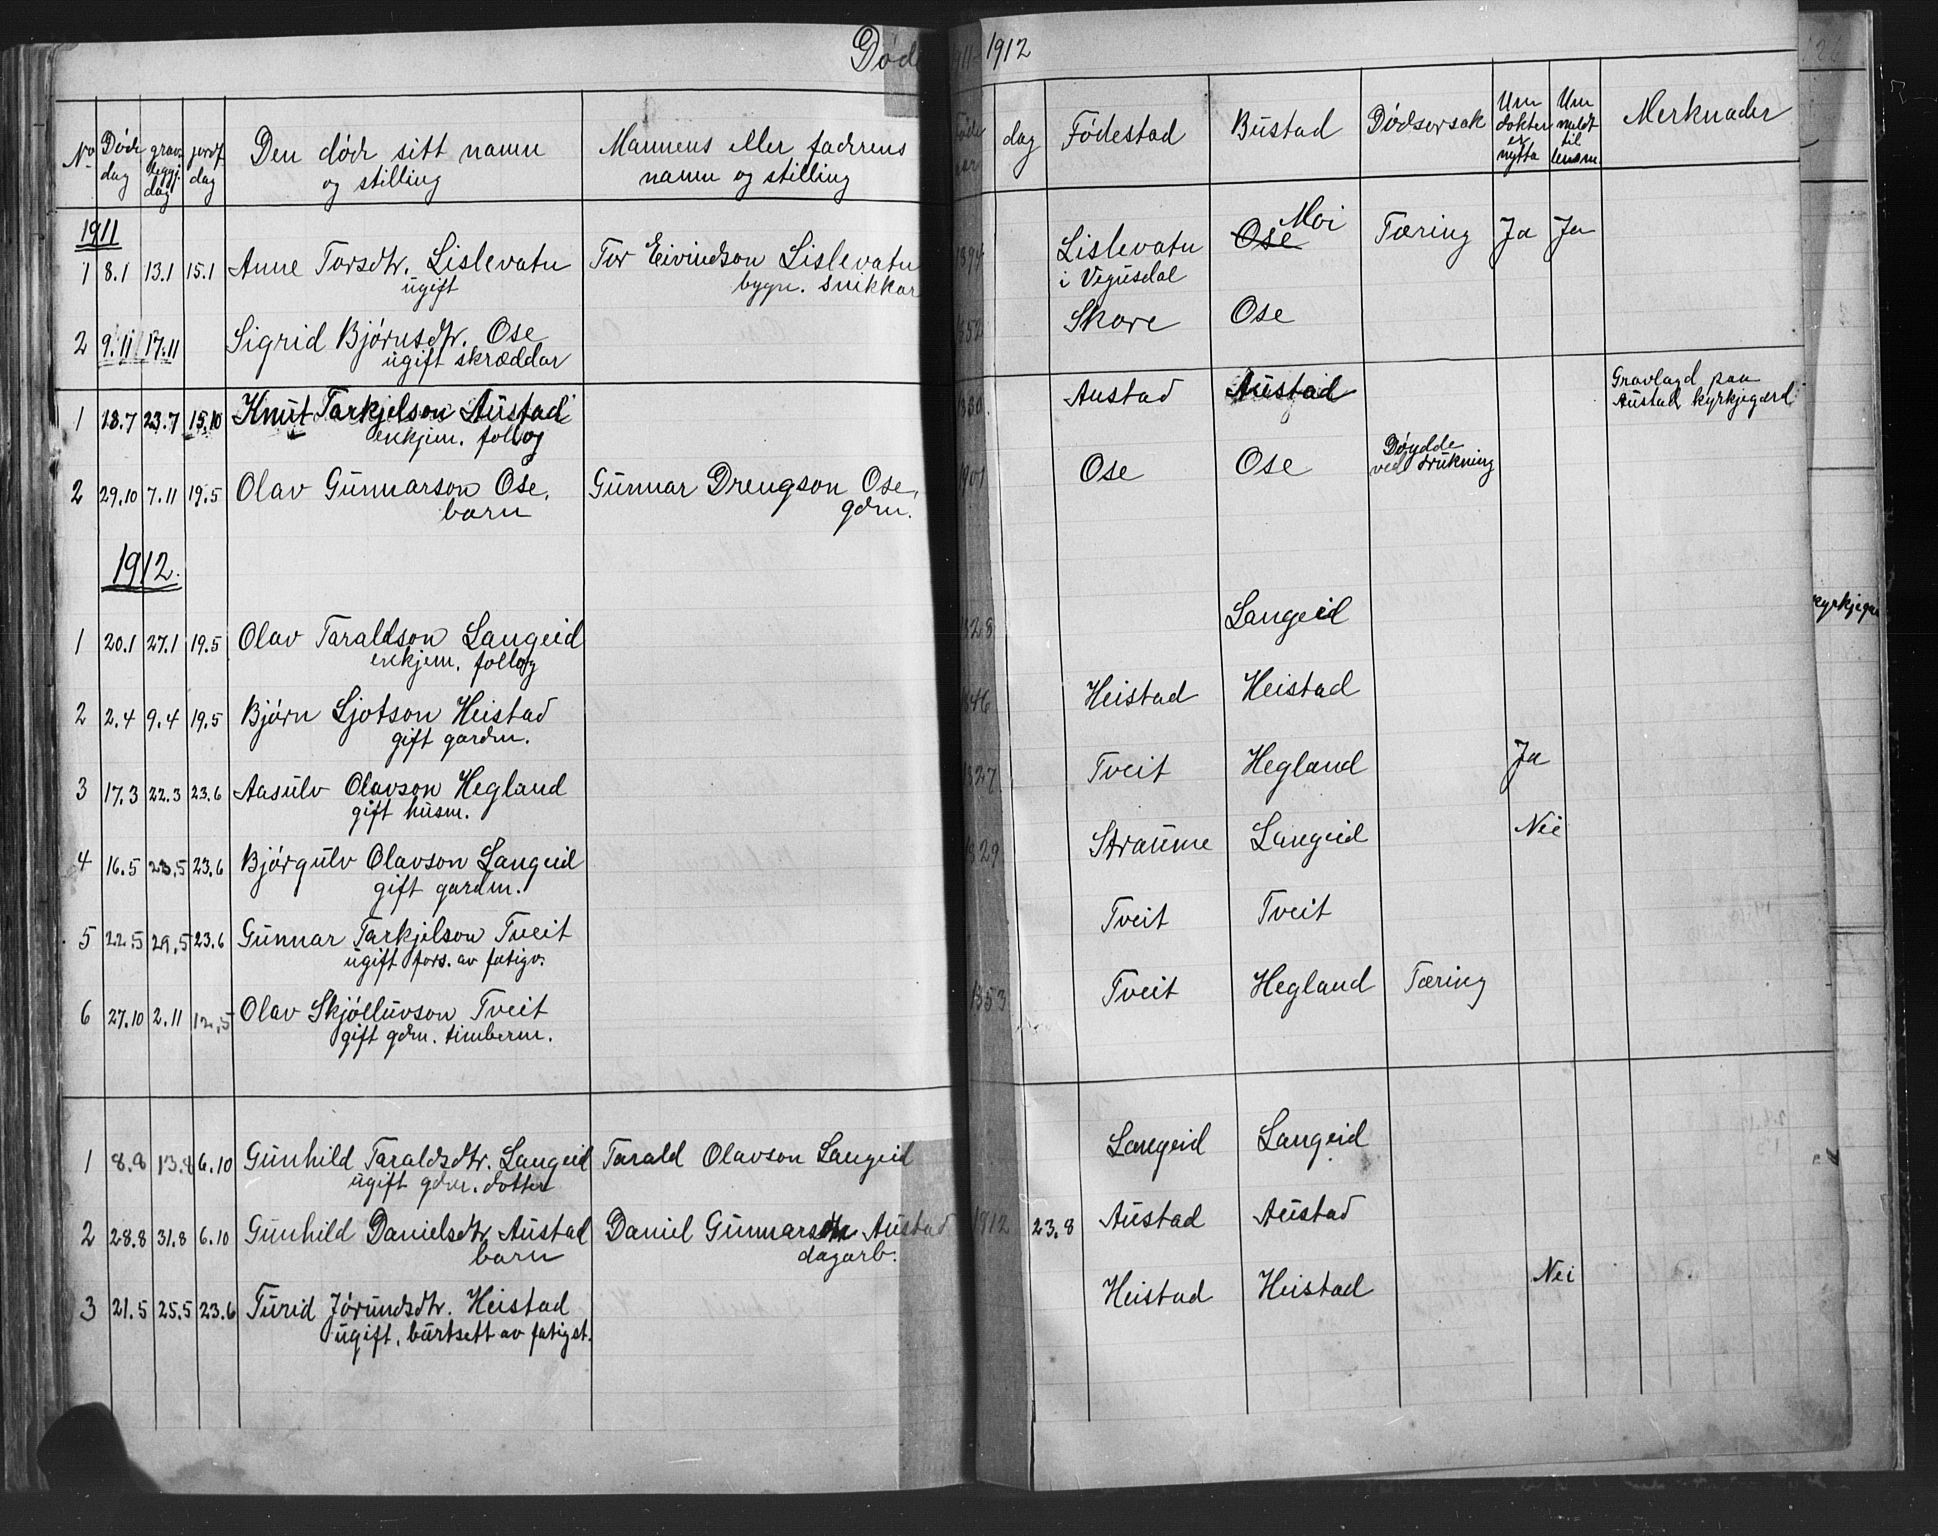 Død
1911 - 1912
No Døds dag gravleggj. dag jordf. dag Den døde sitt namn og stilling Mannens eller faderens namn og stilling Føde aar dag Fødestad Bustad Dødsorsak Um dokter er nytta Um meldt til lensm. Merknader
1911
1 8.1 13.1 15.1 Anne Torsdtr. Lislevatn Tor Eivindson Lislevatn 1894 Lislevatn Ose Moi Tæring Ja Ja
ugift bygn. snikkar i Vegusdal
2 9.11 17.11 Sigrid Bjørnsdtr. Ose 1852 Skare Ose
ugift skræddar
1 18.7 23.7 15.10 Knut Tarkjelson Austad 1830 Austad Austad Gravlagd paa
enkjem. follog Austad kyrkjegard
2 29.10 7.11 19.5 Olav Gunnarson Ose, Gunnar Drengson Ose, 1907 Ose Ose Døydde
barn gdm. ved drukning
1912.
1 20.1 27.1 19.5 Olav Taraldson Langeid 1828 Langeid
enkjem. follog
2 2.4 9.4 19.5 Bjørn Ljotson Heistad 1846 Heistad Heistad
gift gardm.
3 17.3 22.3 23.6 Aasulv Olavson Hegland 1827 Tveit Hegland Ja
gift husm.
4 16.5 23.5 23.6 Bjørgulv Olavson Langeid 1829 Straume Langeid Nei
gift gardm.
5 22.5 29.5 23.6 Gunnar Tarkjelson Tveit Tveit Tveit
ugift fors. av fatigv.
6 27.10 2.11 12.5 Olav Skjølluvson Tveit 1853 Tveit Hegland Tæring
gift gdm. timberm.
1 8.8 13.8 6.10 Gunhild Taraldsdtr. Langeid Tarald Olavson Langeid Langeid Langeid
ugift gdm. dotter
2 28.8 31.8 6.10 Gunhild Danielsdtr. Austad Daniel Gunnarson Austad 1912 23.8 Austad Austad
barn dagarb.
3 21.5 25.5 23.6 Turid Jørundsdtr. Heistad Heistad Heistad Nei
ugift, burtsett av fatigst.
kyrkjegar